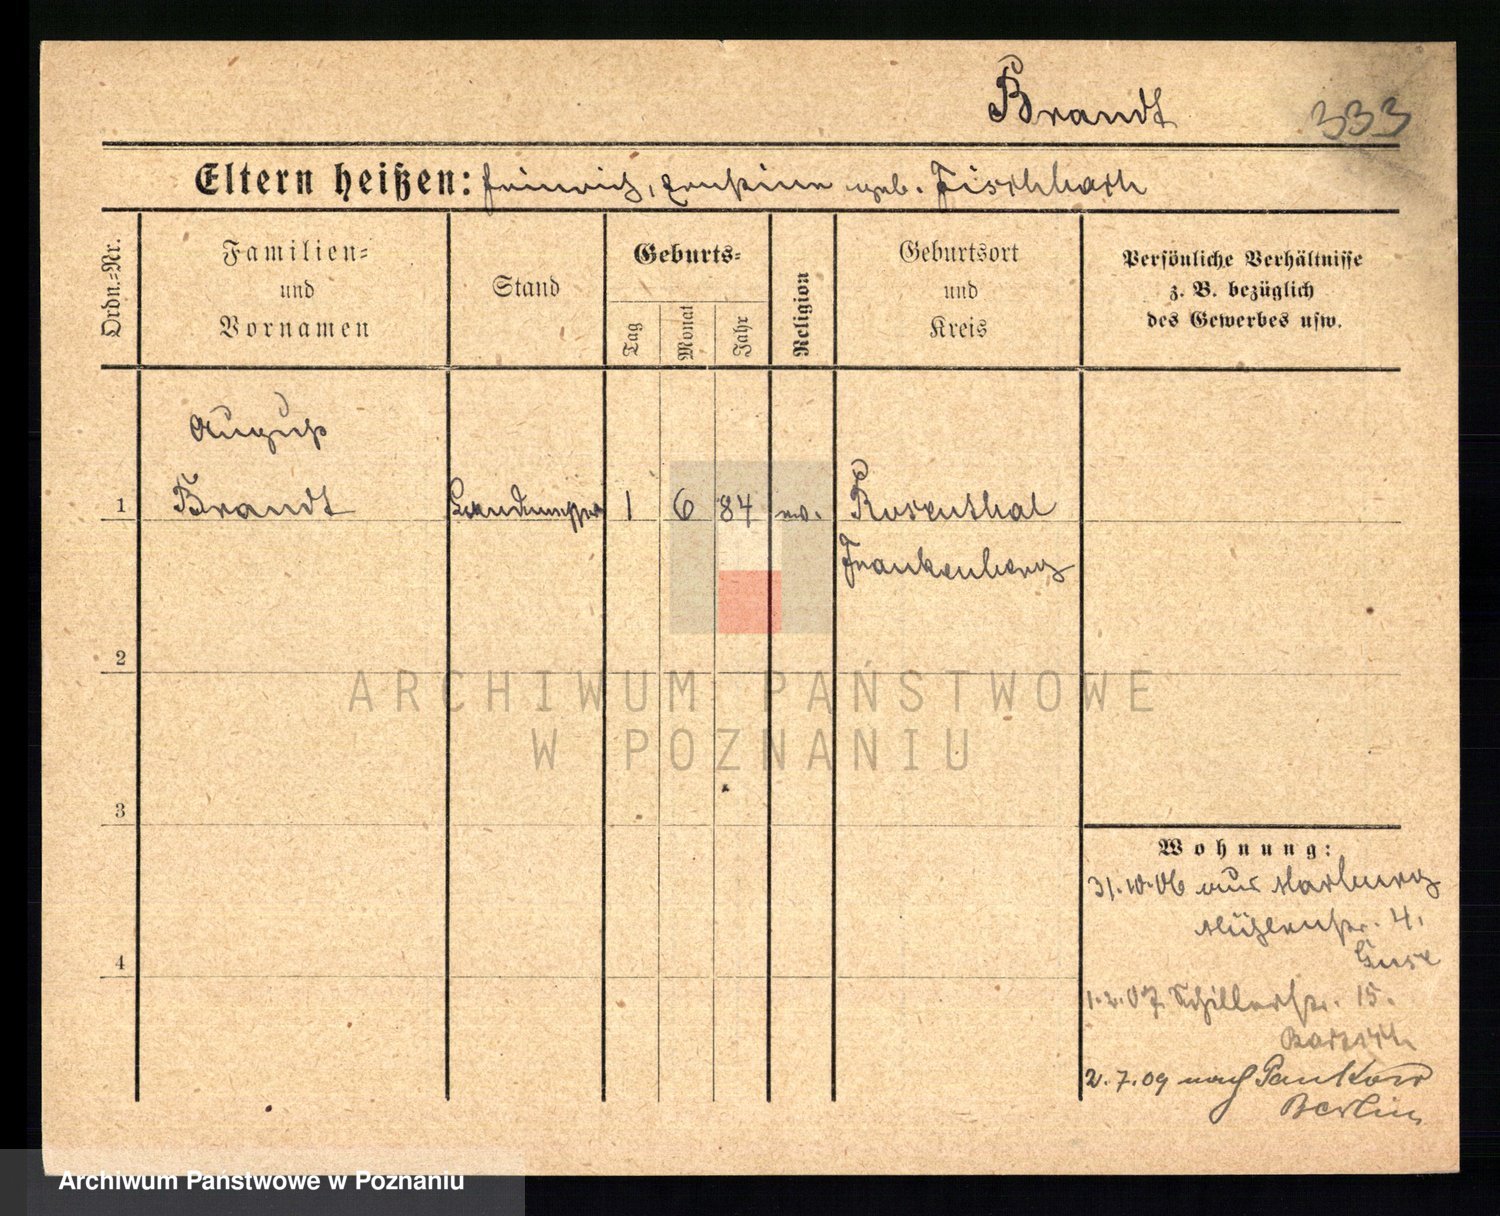 Brandt 333
Eltern heißen: Heinrich, Ernstine geb. Fischbach
Ordn.-Nr.
Familien-
und
Vornamen
Stand
Geburts-
Tag
Monat
Jahr
Religion
Geburtsort
und
Kreis
Persönliche Verhältnisse
z. B. bezüglich
des Gewerbes usw.
August
1 Brandt Landmesser 1 6 84 ev. Rosenthal
Frankenberg
2
ARCHIWUM PAŃSTWOWE
W POZNANIU
3
Wohnung:
31.10.06 aus Marburg
Mühlenstr. 4.
4
1.2.07 Schillerstr. 15.
2.7.09 nach Pankow
Berlin
Archiwum Państwowe w Poznaniu